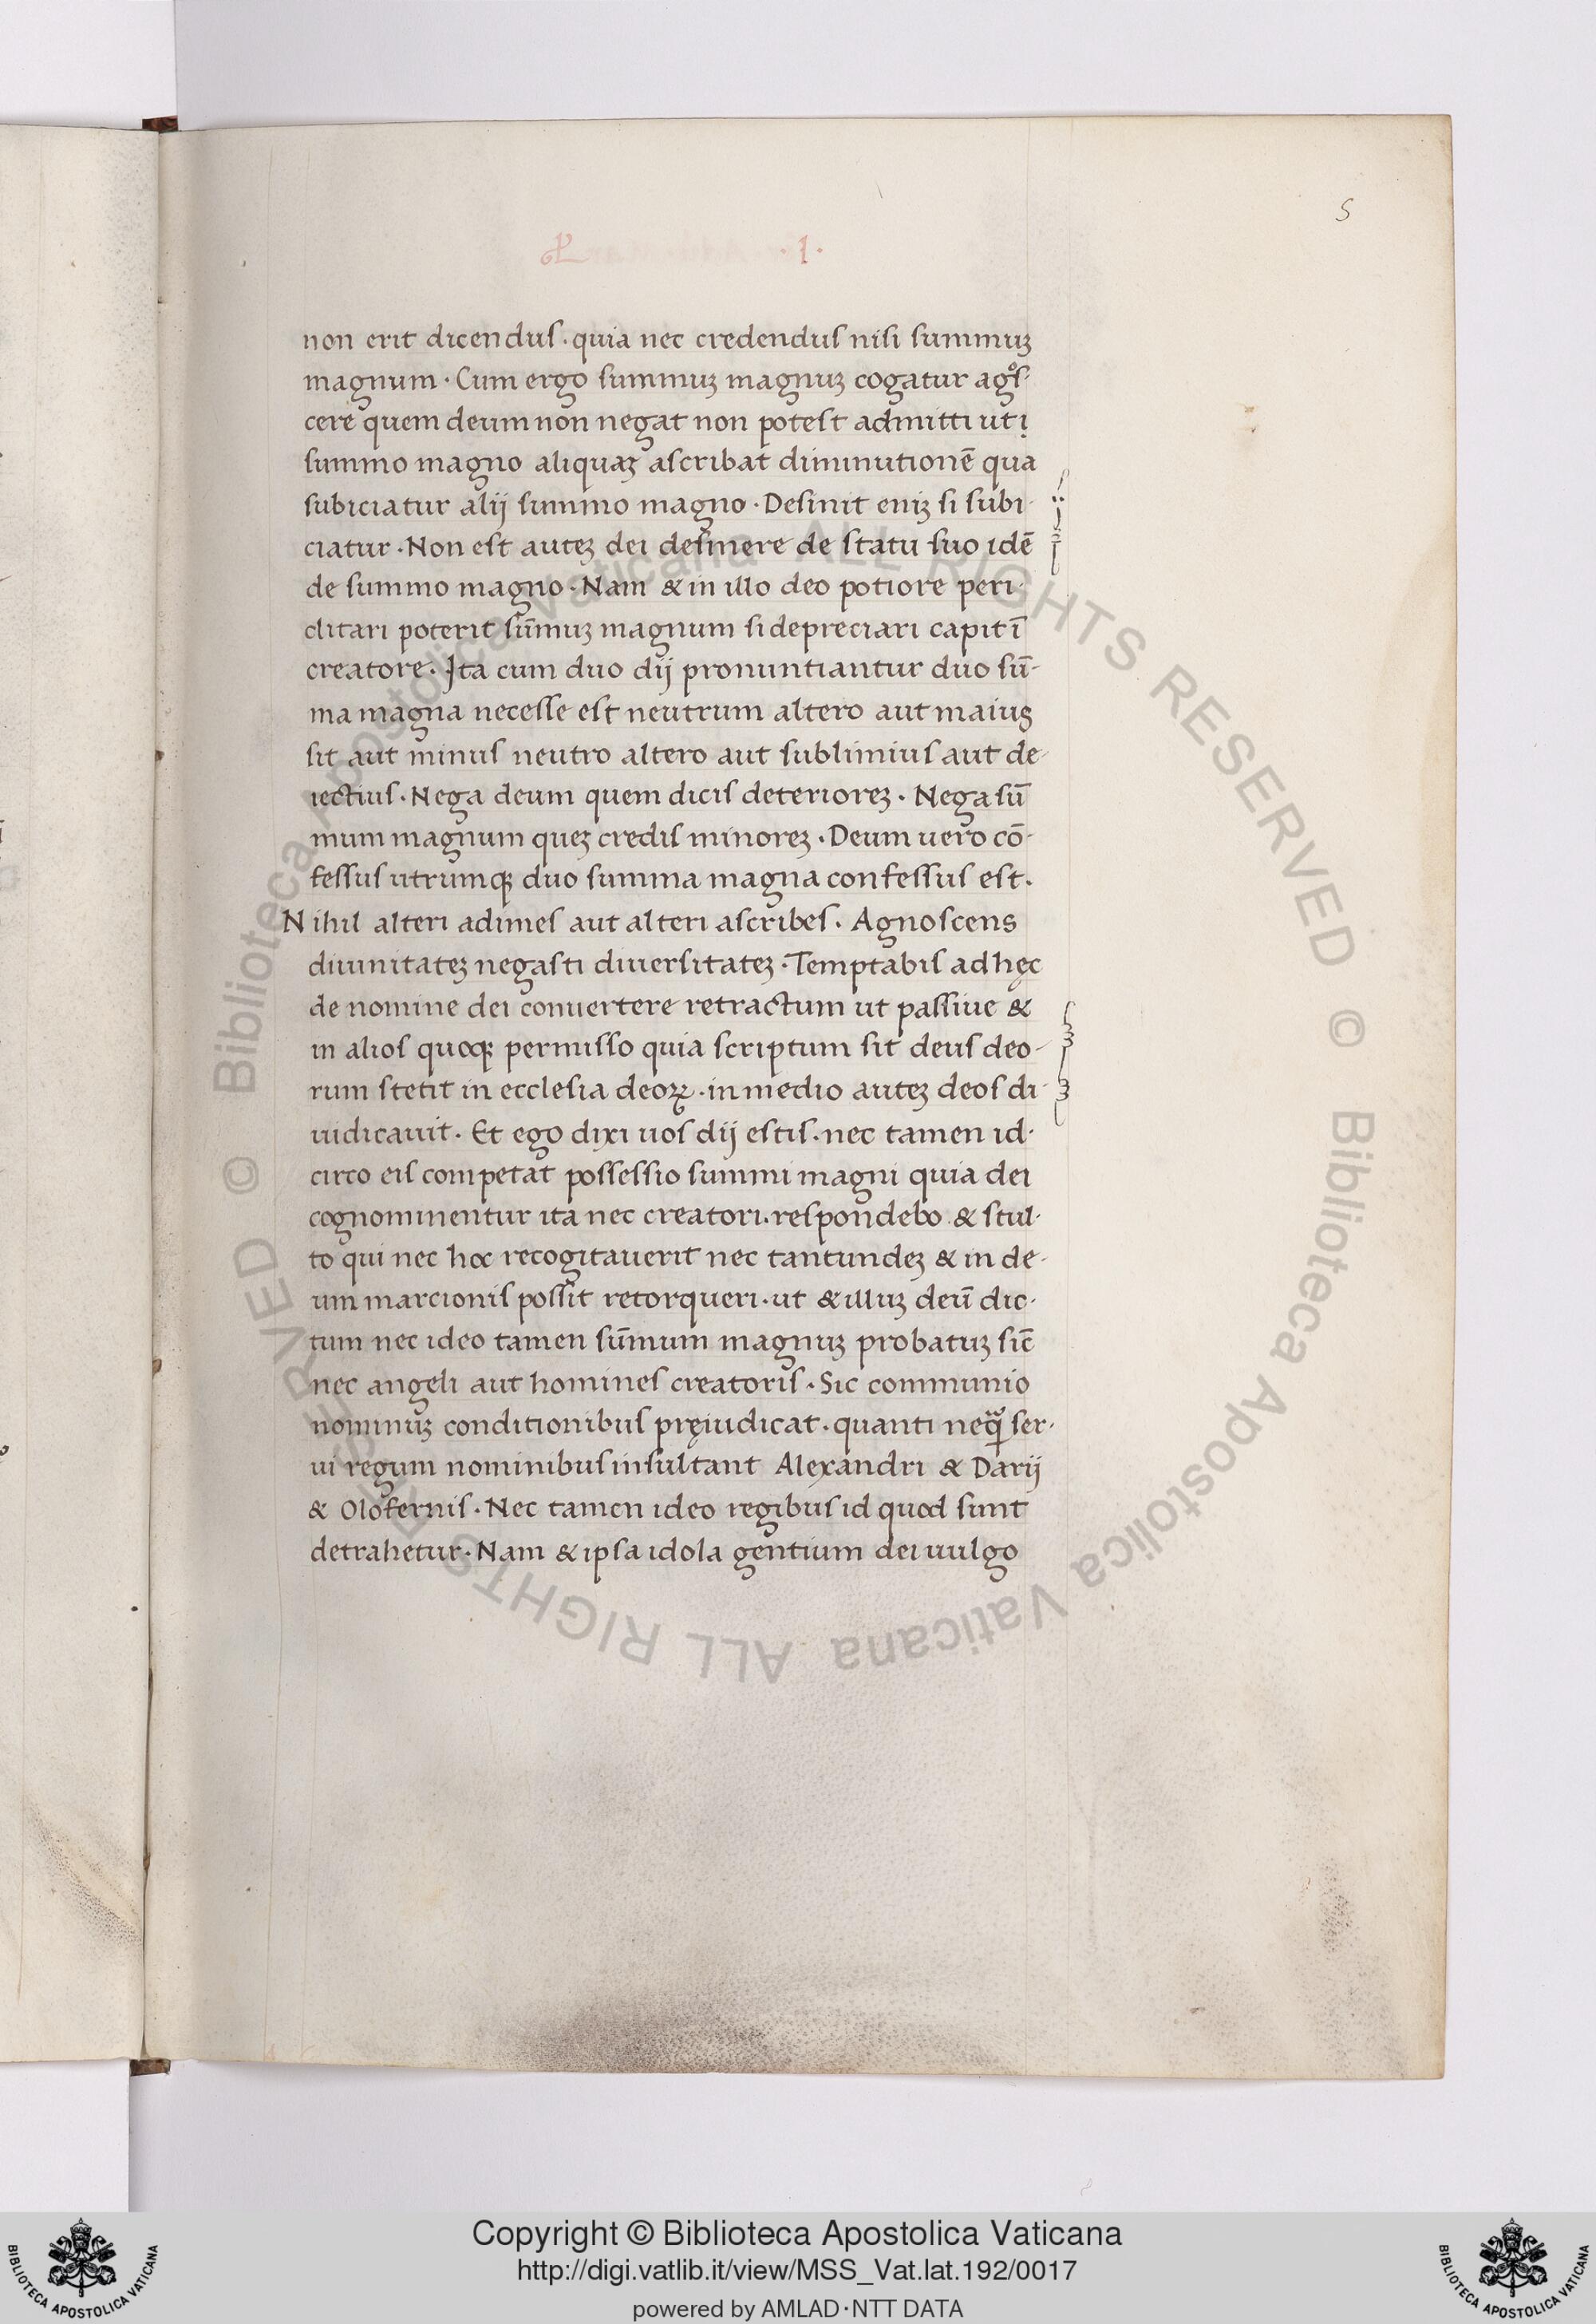 5
L · I ·
non erit dicendus · quia nec credendus nisi summuꝫ
magnum · Cum ergo summuꝫ magnuꝫ cogatur agͦs-
cere quem deum non negat non potest admitti ut ị
summo magno aliquaꝫ ascribat diminutionē qua
subiciatur alij summo magno · Desinit eniꝫ si subi-
ciatur · Non est auteꝫ dei desinere de statu suo idē
de summo magno · Nam & in illo deo potiore peri-
clitari poterit sūmuꝫ magnum si depreciari capit ī
creatore · Ita cum duo dij pronuntiantur duo sū-
ma magna necesse est neutrum altero aut maius
sit aut minus neutro altero aut sublimius aut de-
iectius · Nega deum quem dicis deterioreꝫ · Nega sū
mum magnum queꝫ credis minoreꝫ · Deum uero cō-
fessus utrumqꝫ duo summa magna confessus est ·
Nihil alteri adimes aut alteri ascribes · Agnoscens
diuinitateꝫ negasti diuersitateꝫ · Temptabis ad hęc
de nomine dei conuertere retractum ut passiue &
in alios quoqꝫ permisso quia scriptum sit deus deo-
rum stetit in ecclesia deoꝝ · in medio auteꝫ deos di-
uidicauit · Et ego dixi uos dij estis · nec tamen id-
circo eis competat possessio summi magni quia dei
cognominentur ita nec creatori · respondebo & stul-
to qui nec hoc recogitauerit nec tantundeꝫ & in de-
um marcionis possit retorqueri · ut & illuꝫ deū dic-
tum nec ideo tamen sūmum magnuꝫ probatuꝫ sic̄
nec angeli aut homines creatoris · Sic communio
nominuꝫ conditionibus pręiudicat · quanti neqᷓ ser-
ui regum nominibus insultant Alexandri & Darij
& Olofernis · Nec tamen ideo regibus id quod sunt
detrahetur · Nam & ipsa idola gentium dei uulgo
© Biblioteca Apostolica Vaticana ALL RIGHTS RESERVED © Biblioteca Apostolica Vaticana ALL RIGHTS RESERVED
Copyright © Biblioteca Apostolica Vaticana
http://digi.vatlib.it/view/MSS_Vat.lat.192/0017
powered by AMLAD·NTT DATA
BIBLIOTECA APOSTOLICA VATICANA
BIBLIOTECA APOSTOLICA VATICANA